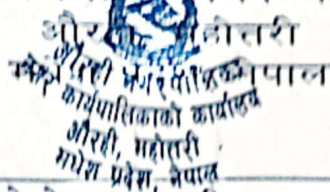 औरही, महोत्तरी
नेपाल
कार्यपालिकाको कार्यालय
औरही, महोत्तरी
मधेश प्रदेश, नेपाल